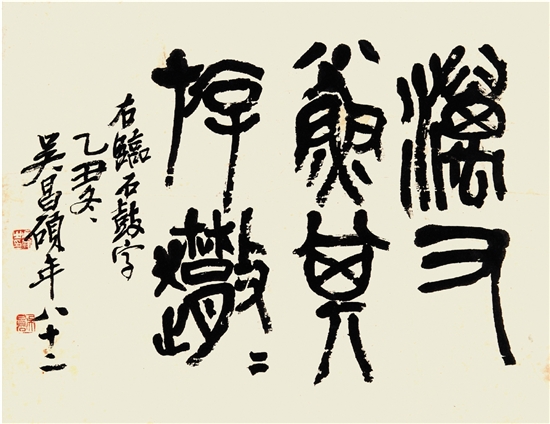 澫又
小魚其
斿
右臨石鼓字
乙丑冬
吳昌碩年八十二